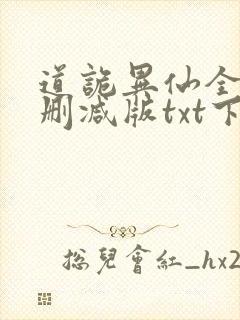 道詭異仙全
刪減版txt下
總兒會紅_hx2